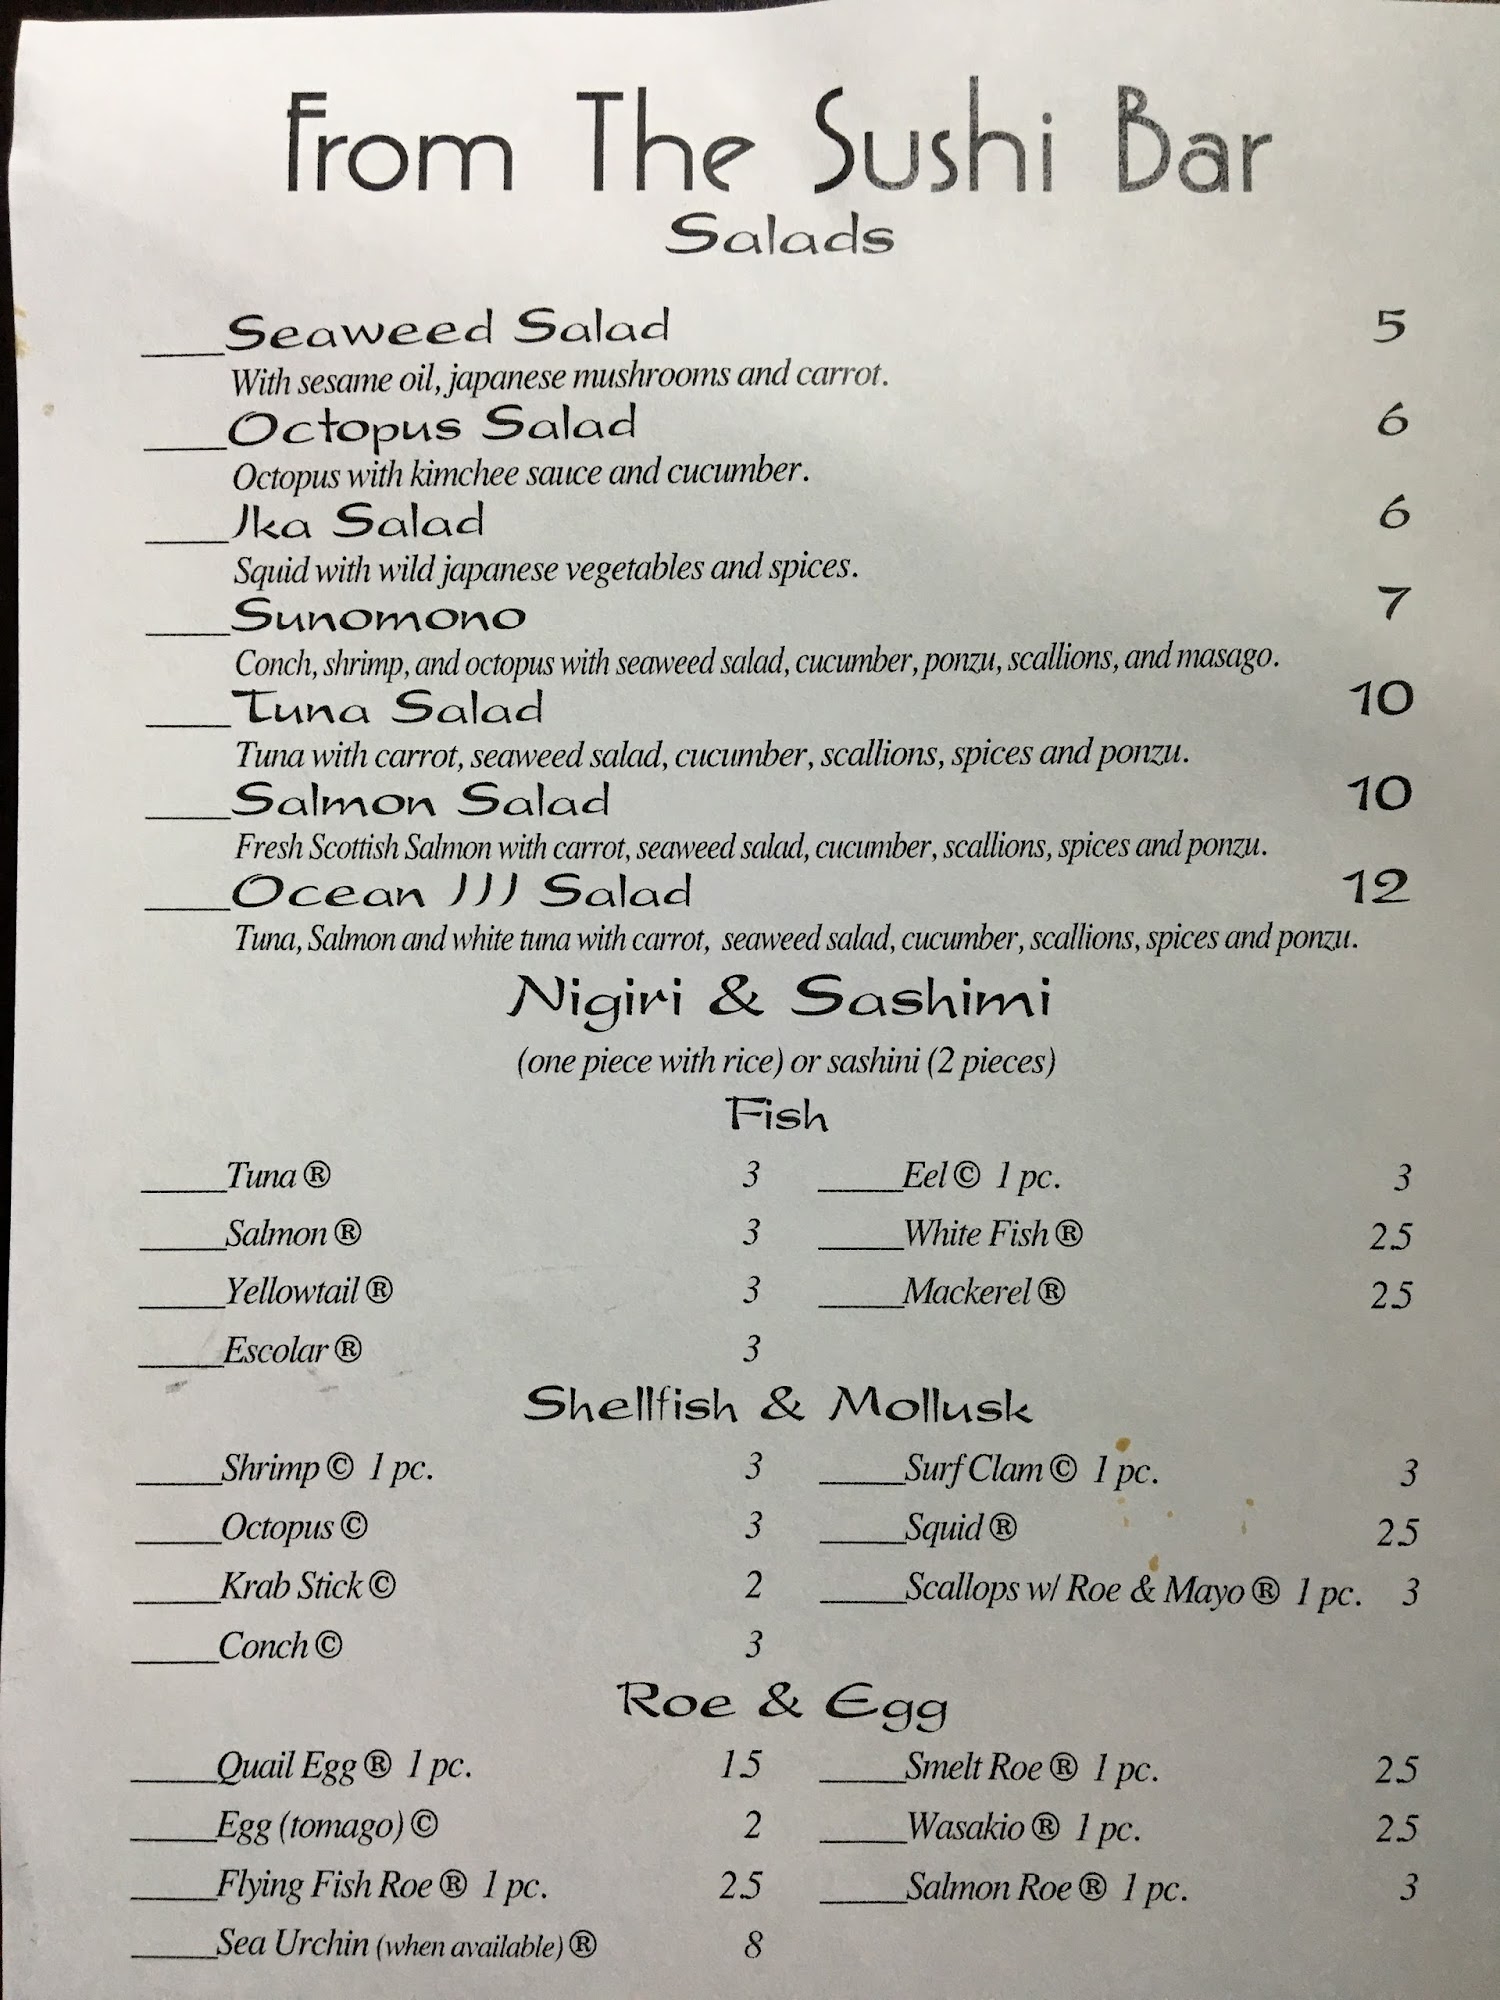 From The Sushi Bar
Salads
____Seaweed Salad 5
With sesame oil, japanese mushrooms and carrot.
____Octopus Salad 6
Octopus with kimchee sauce and cucumber.
____Ika Salad 6
Squid with wild japanese vegetables and spices.
____Sunomono 7
Conch, shrimp, and octopus with seaweed salad, cucumber, ponzu, scallions, and masago.
____Tuna Salad 10
Tuna with carrot, seaweed salad, cucumber, scallions, spices and ponzu.
____Salmon Salad 10
Fresh Scottish Salmon with carrot, seaweed salad, cucumber, scallions, spices and ponzu.
____Ocean III Salad 12
Tuna, Salmon and white tuna with carrot, seaweed salad, cucumber, scallions, spices and ponzu.
Nigiri & Sashimi
(one piece with rice) or sashini (2 pieces)
Fish
____Tuna ® 3 ____Eel © 1 pc. 3
____Salmon ® 3 ____White Fish ® 2.5
____Yellowtail ® 3 ____Mackerel ® 2.5
____Escolar ® 3
Shellfish & Mollusk
____Shrimp © 1 pc. 3 ____Surf Clam © 1 pc. 3
____Octopus © 3 ____Squid ® 2.5
____Krab Stick © 2 ____Scallops w/ Roe & Mayo ® 1 pc. 3
____Conch © 3
Roe & Egg
____Quail Egg ® 1 pc. 1.5 ____Smelt Roe ® 1 pc. 2.5
____Egg (tomago) © 2 ____Wasakio ® 1 pc. 2.5
____Flying Fish Roe ® 1 pc. 2.5 ____Salmon Roe ® 1 pc. 3
____Sea Urchin (when available) ® 8